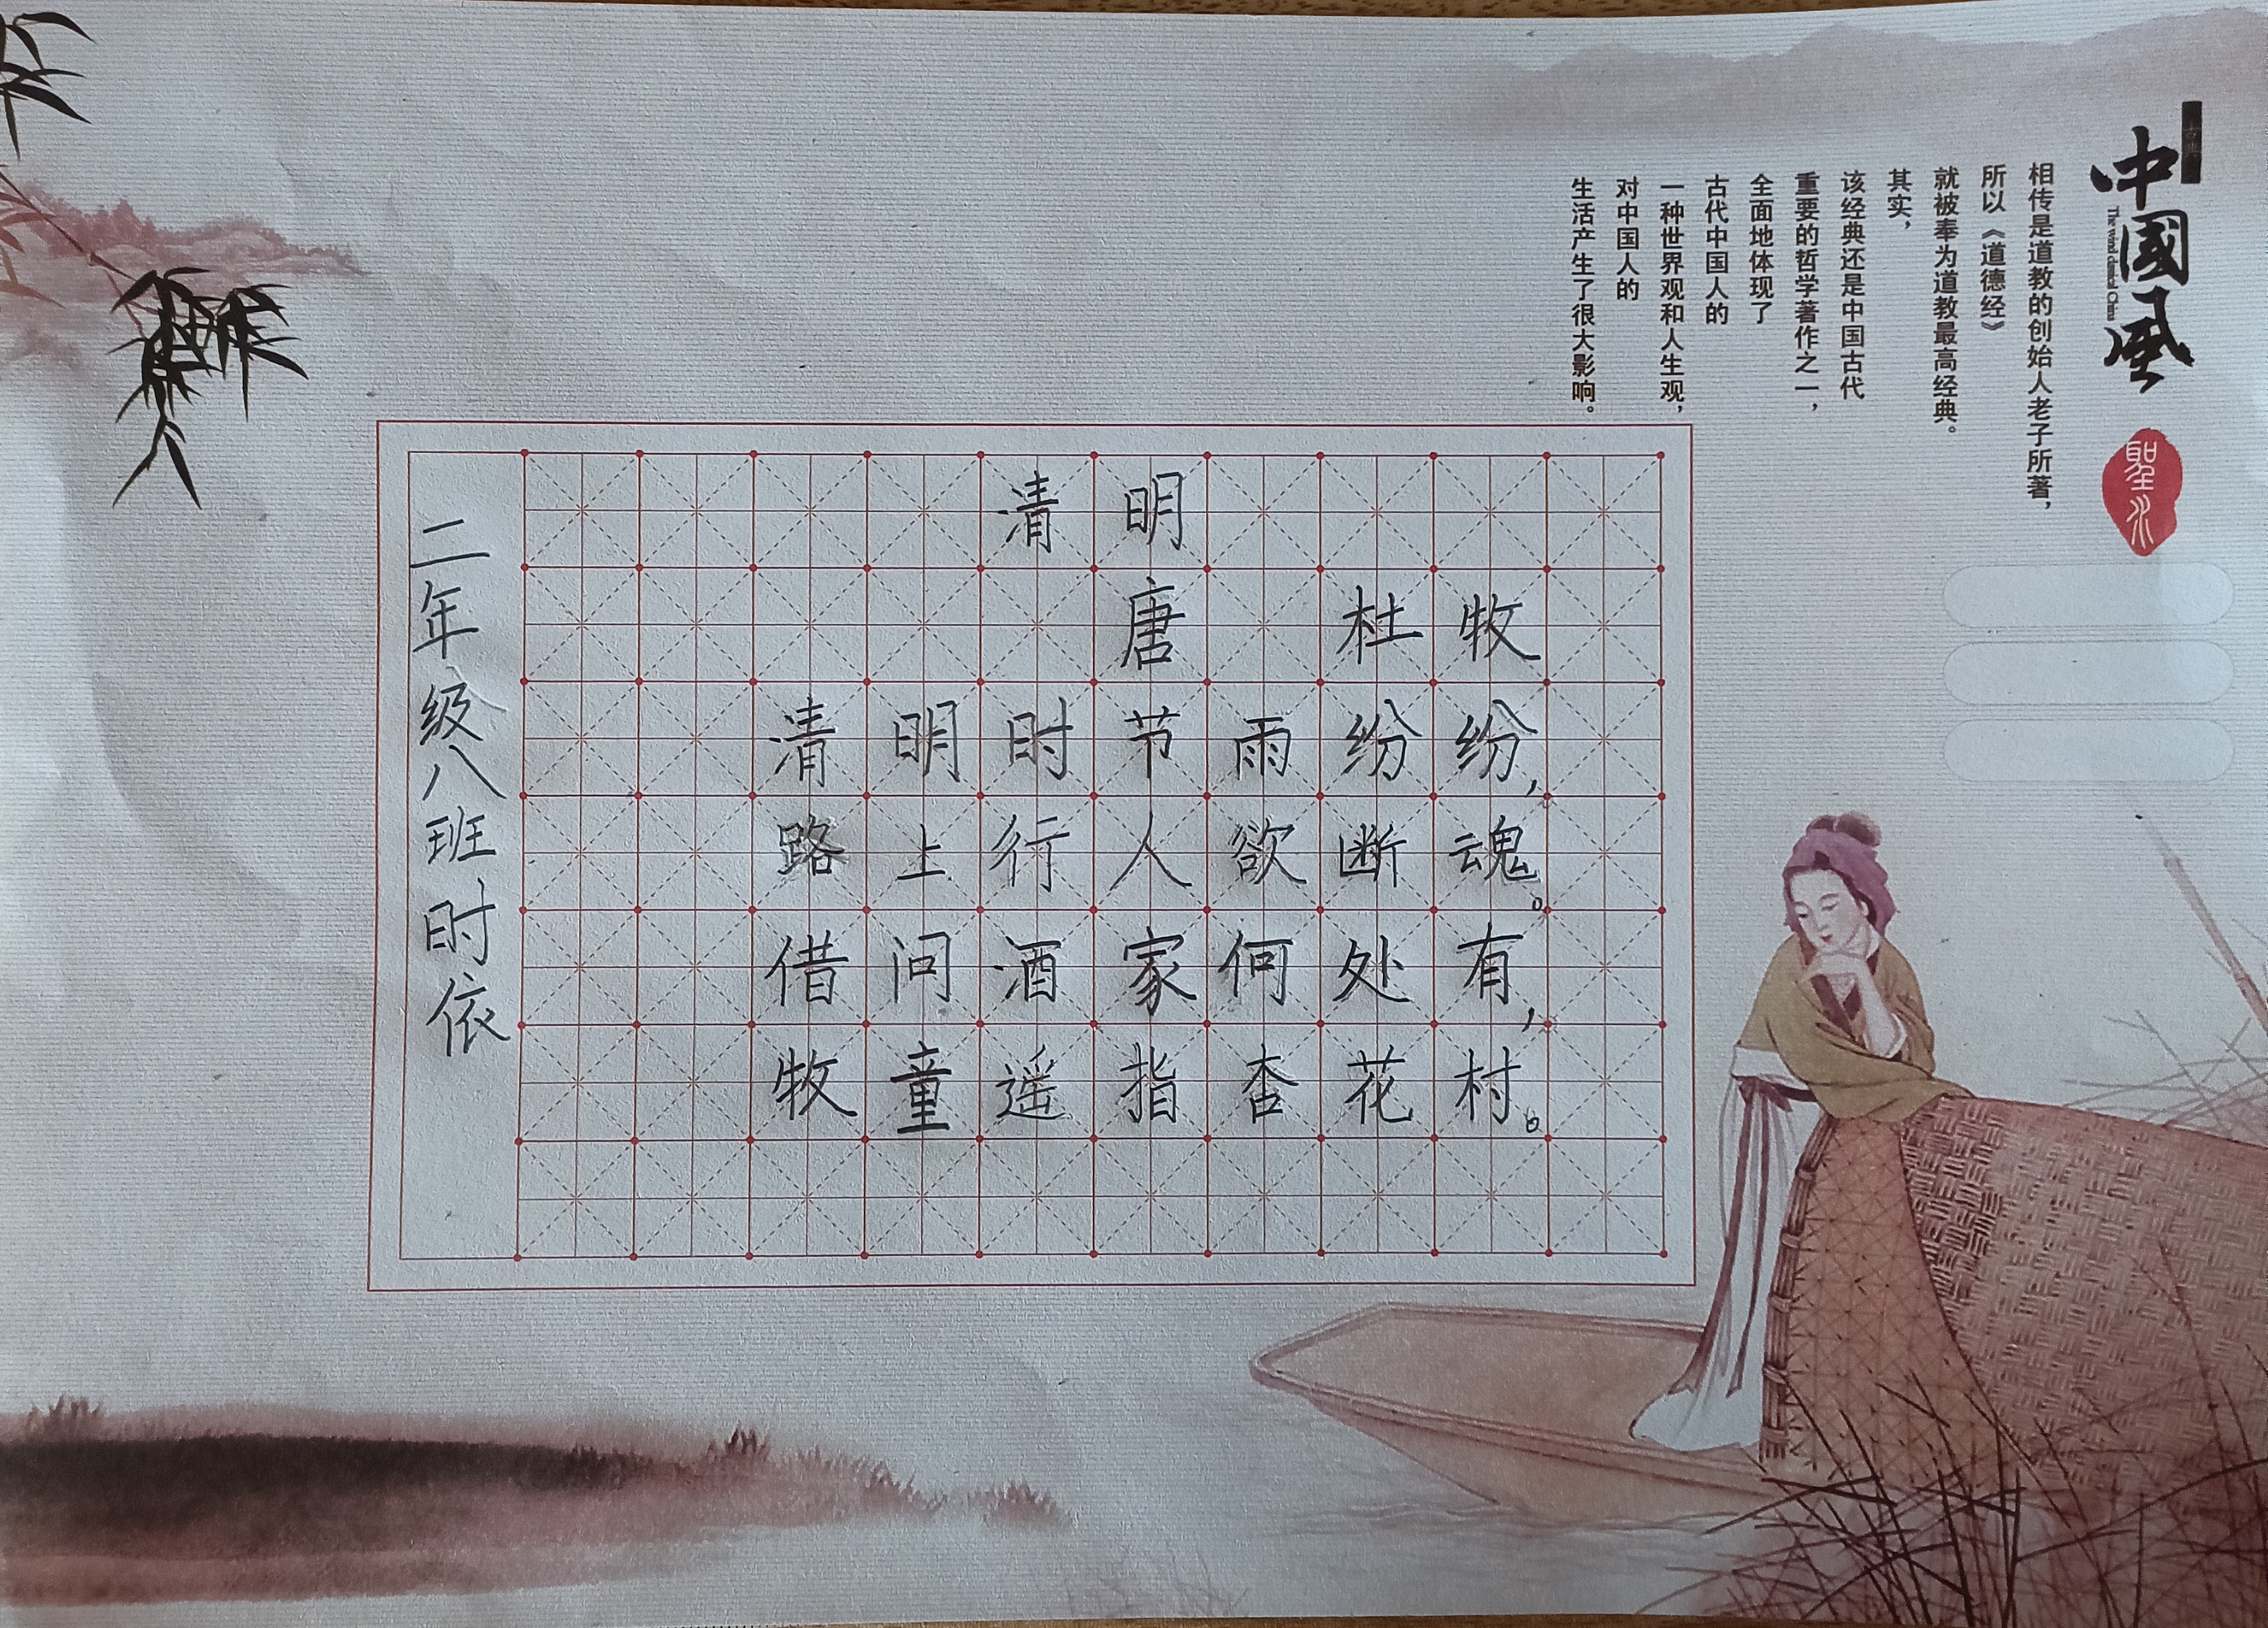 古典
中國風
聖水
相传是道教的创始人老子所著，
所以《道德经》
就被奉为道教最高经典。
其实，
该经典还是中国古代
重要的哲学著作之一，
全面地体现了
古代中国人的
一种世界观和人生观，
对中国人的
生活产生了很大影响。
清明
唐 杜牧
清明时节雨纷纷，
路上行人欲断魂。
借问酒家何处有，
牧童遥指杏花村。
二年级八班时依